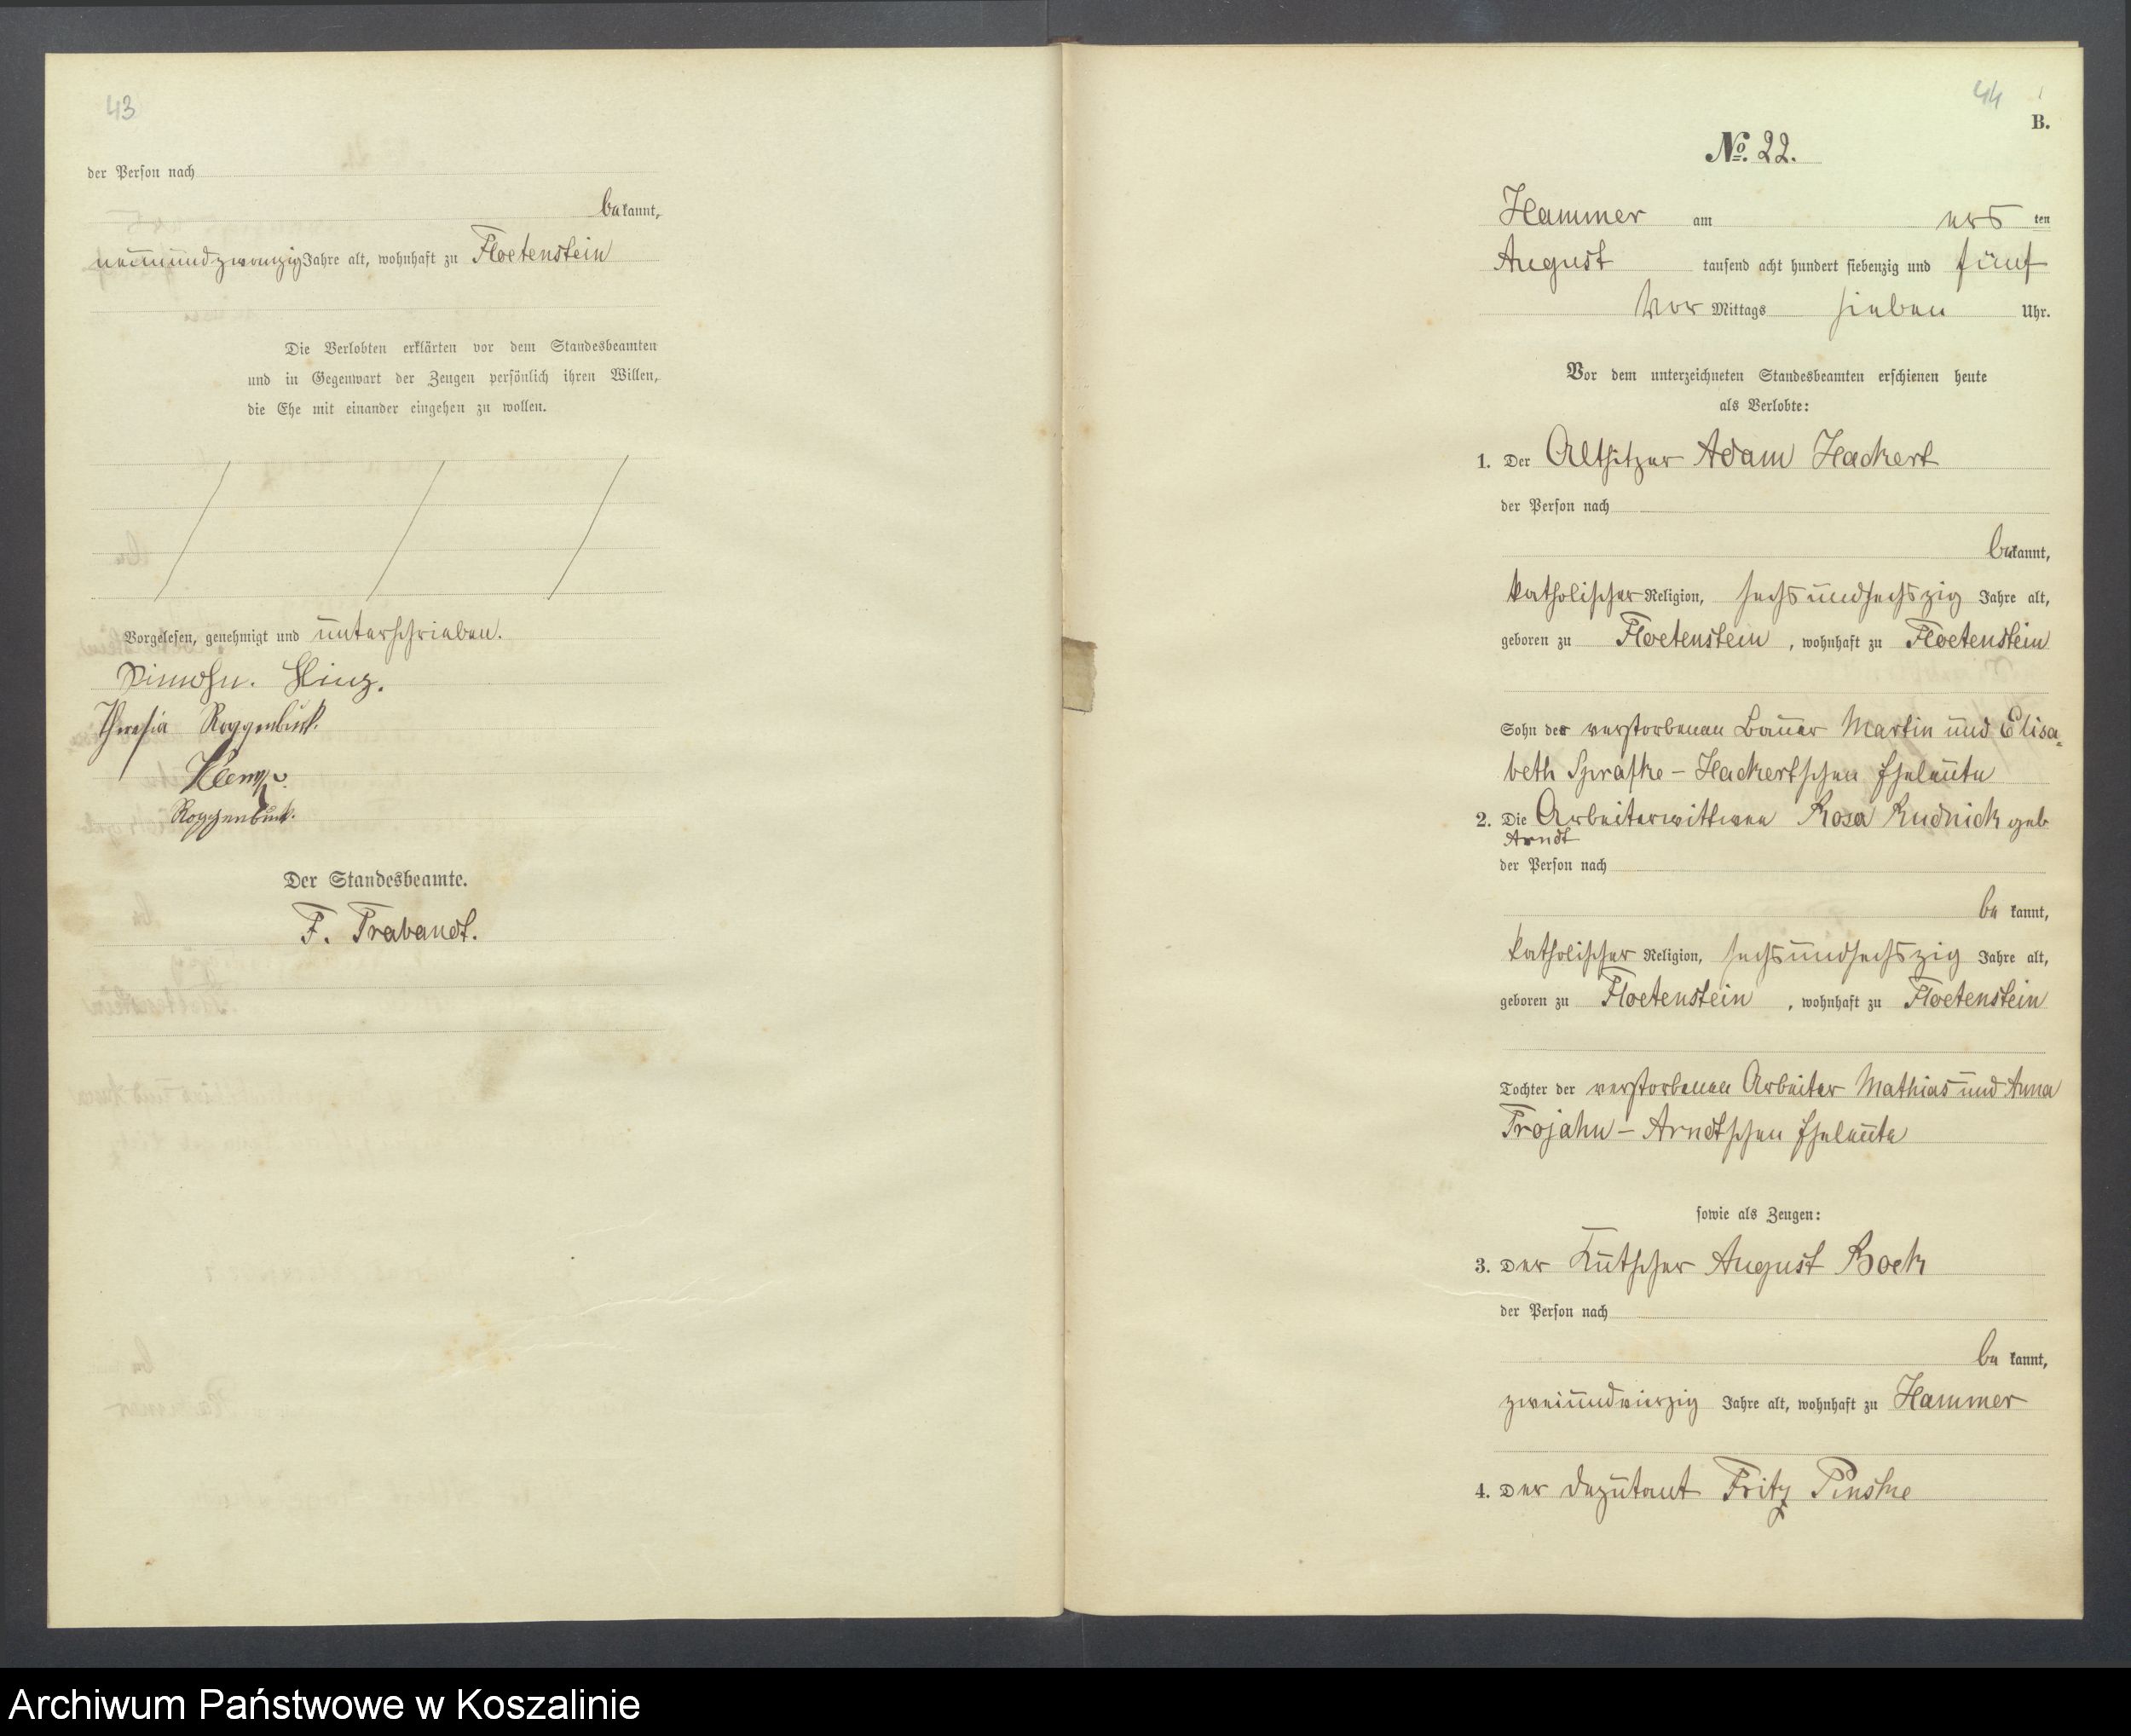 43
der Person nach
bekannt,
neunundzwanzig Jahre alt, wohnhaft zu Floetenstein
Die Verlobten erklärten vor dem Standesbeamten
und in Gegenwart der Zeugen persönlich ihren Willen,
die Ehe mit einander eingehen zu wollen.
Vorgelesen, genehmigt und unterschrieben.
Hinz.
Theresia Roggenbuck.
Roggenbuck.
Der Standesbeamte.
F. Trabandt.
44
B.
No. 22.
Hammer am ersten
August tausend acht hundert siebenzig und fünf
Vor Mittags sieben Uhr.
Vor dem unterzeichneten Standesbeamten erschienen heute
als Verlobte:
1. Der Altsitzer Adam Hackert
der Person nach
bekannt,
katholischer Religion, sechsundsechszig Jahre alt,
geboren zu Floetenstein, wohnhaft zu Floetenstein
Sohn der verstorbenen Bauer Martin und Elisa-
beth Spraske-Hackertschen Eheleute
2. Die Arbeiterwittwe Rosa Rudnick geb
Arndt
der Person nach
bekannt,
katholischer Religion, sechsundsechszig Jahre alt,
geboren zu Floetenstein, wohnhaft zu Floetenstein
Tochter der verstorbenen Arbeiter Mathias und Anna
Trojahn-Arndtschen Eheleute
sowie als Zeugen:
3. Der Kutscher August Bock
der Person nach
bekannt,
zweiundvierzig Jahre alt, wohnhaft zu Hammer
4. Der Deputant Fritz Pinske
Archiwum Państwowe w Koszalinie